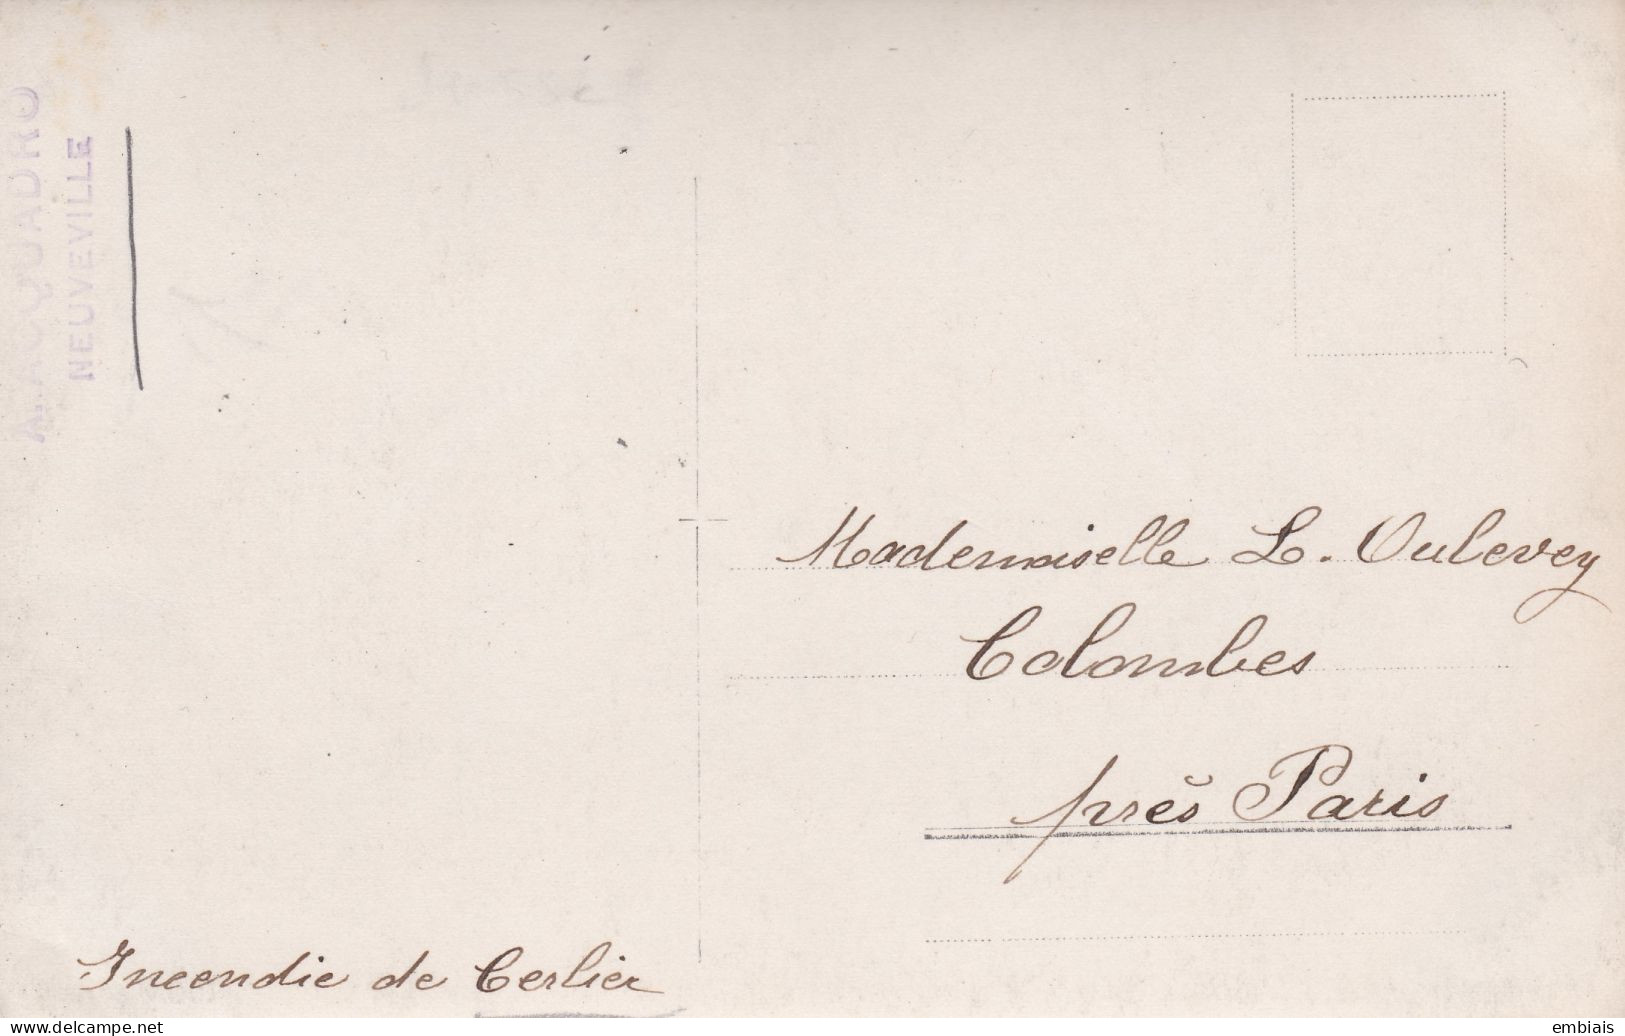 ACQUADRO
NEUVEVILLE
Mademoiselle L. Oulevey
Colombes
près Paris
Incendie de Cerlier
delcampe.net
embiais